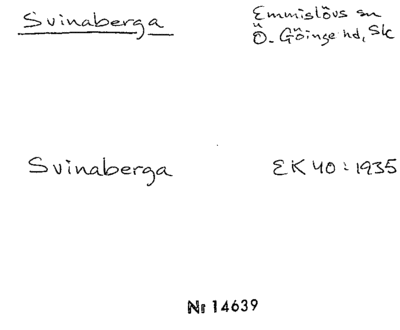 Svinaberga
Emmislövs sn
Ö. Göinge hd, Sk
Svinaberga
EK 40:1935
Nr 14639